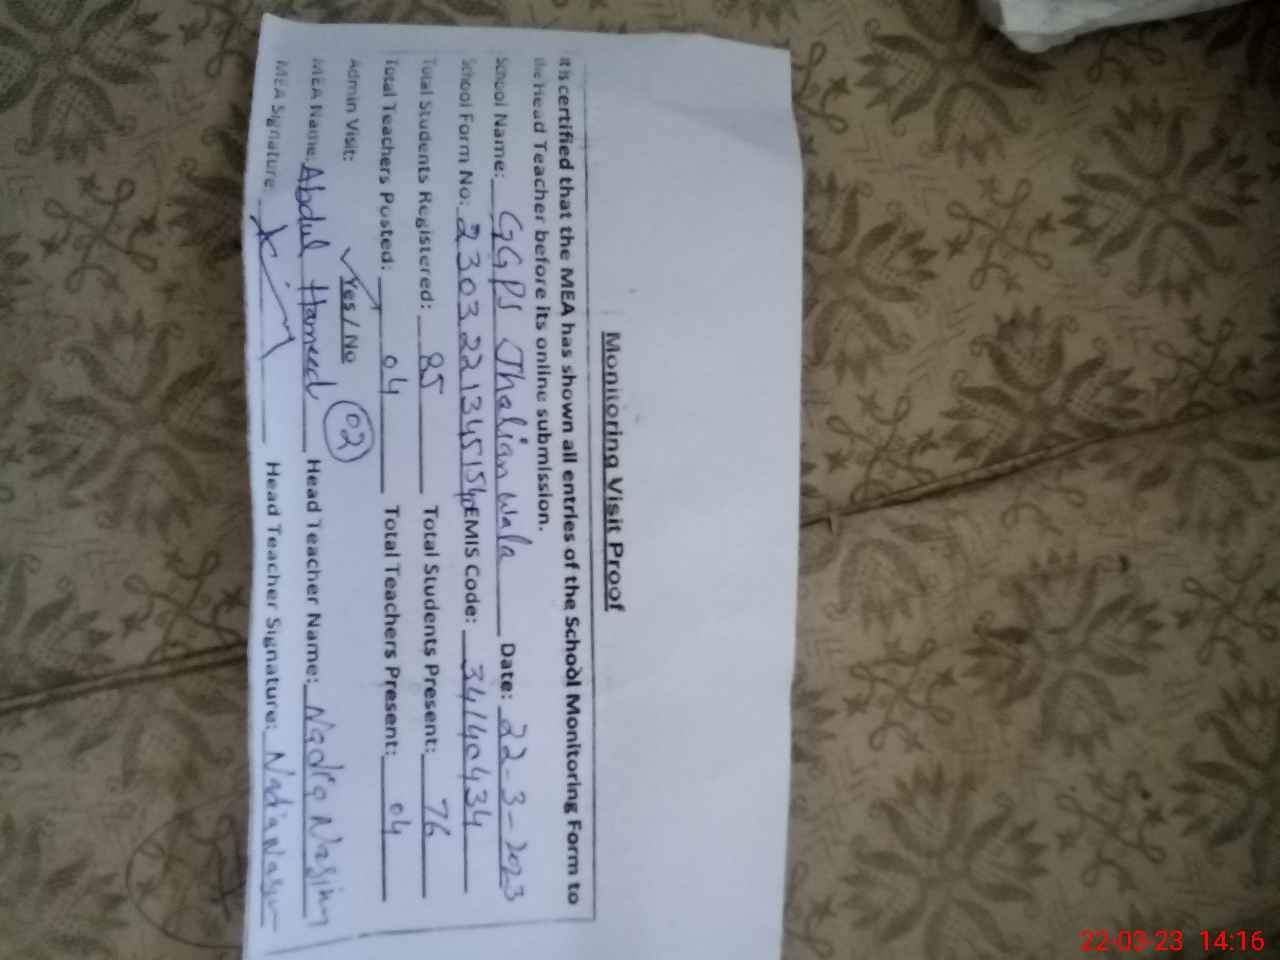 Monitoring Visit Proof
It is certified that the MEA has shown all entries of the School Monitoring Form to
the Head Teacher before its online submission.
School Name: GGPS Thalian Wala Date: 22-3-2023
School Form No: 230322134515456 EMIS Code: 34140434
Total Students Registered: 85 Total Students Present: 76
Total Teachers Posted: 04 Total Teachers Present: 04
Admin Visit: Yes / No 02
MEA Name: Abdul Hameed Head Teacher Name: Nadia
MEA Signature: Head Teacher Signature: Nadia
22-03-23 14:16